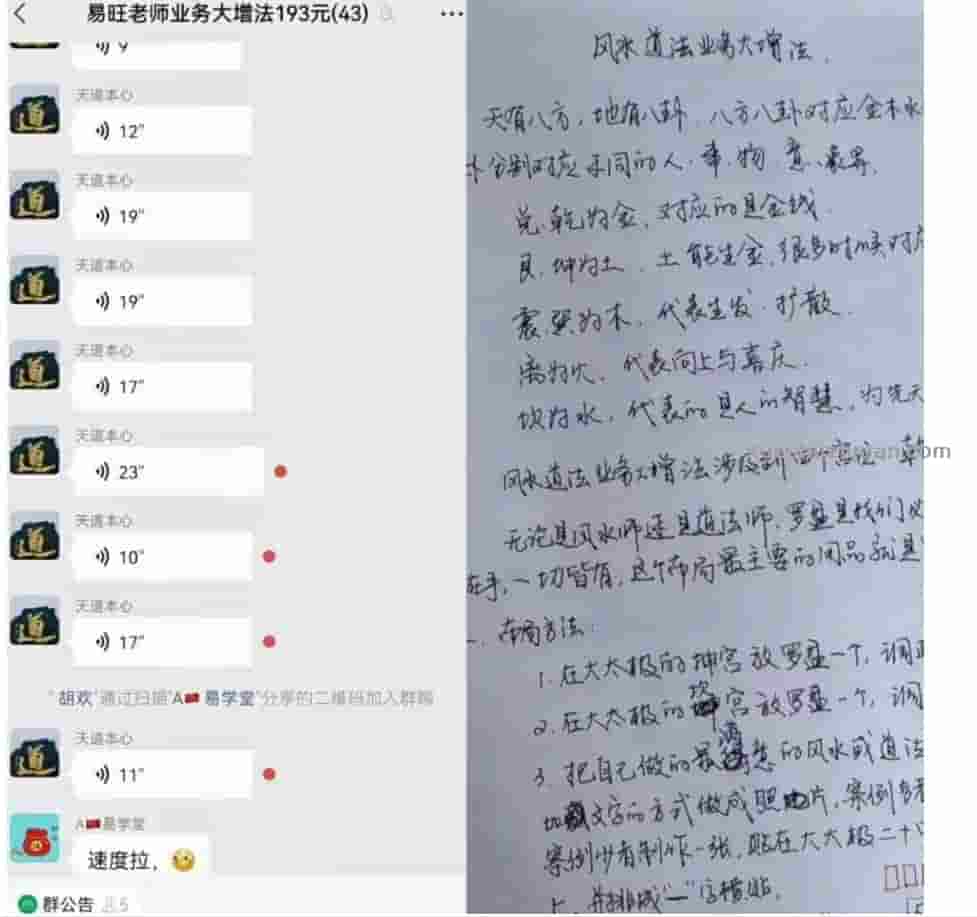 易旺老师业务大增法193元(43)
9
天道本心
12"
天道本心
19"
天道本心
19"
天道本心
17"
天道本心
23"
天道本心
10"
天道本心
17"
"胡欢"通过扫描"A🇨🇳易学堂"分享的二维码加入群聊
天道本心
11"
A🇨🇳易学堂
速度拉，
群公告 5
风水道法业务大增法.
天有八方，地有八卦，八方八卦对应金木水
分别对应不同的人、事、物、意、象界.
兑.乾为金，对应的是金钱.
艮.坤为土，土能生金，很多时候对应
震巽为木，代表生发.扩散.
离为火，代表向上与喜庆.
坎为水，代表的是人的智慧，为先天
风水道法业务大增法涉及到四个宫位
无论是风水师还是道法师，罗盘是我们必
在手，一切皆有，这个布局最主要的用品就是
一、布局方法.
1.在大太极的坤宫放罗盘一个，调
2.在大太极的坎宫放罗盘一个，调
3.把自己做的最满意的风水或道法
文字的方式做成照片，案例多者
案例少者制作一张，贴在大太极二十
上，并排成"一"字横贴.